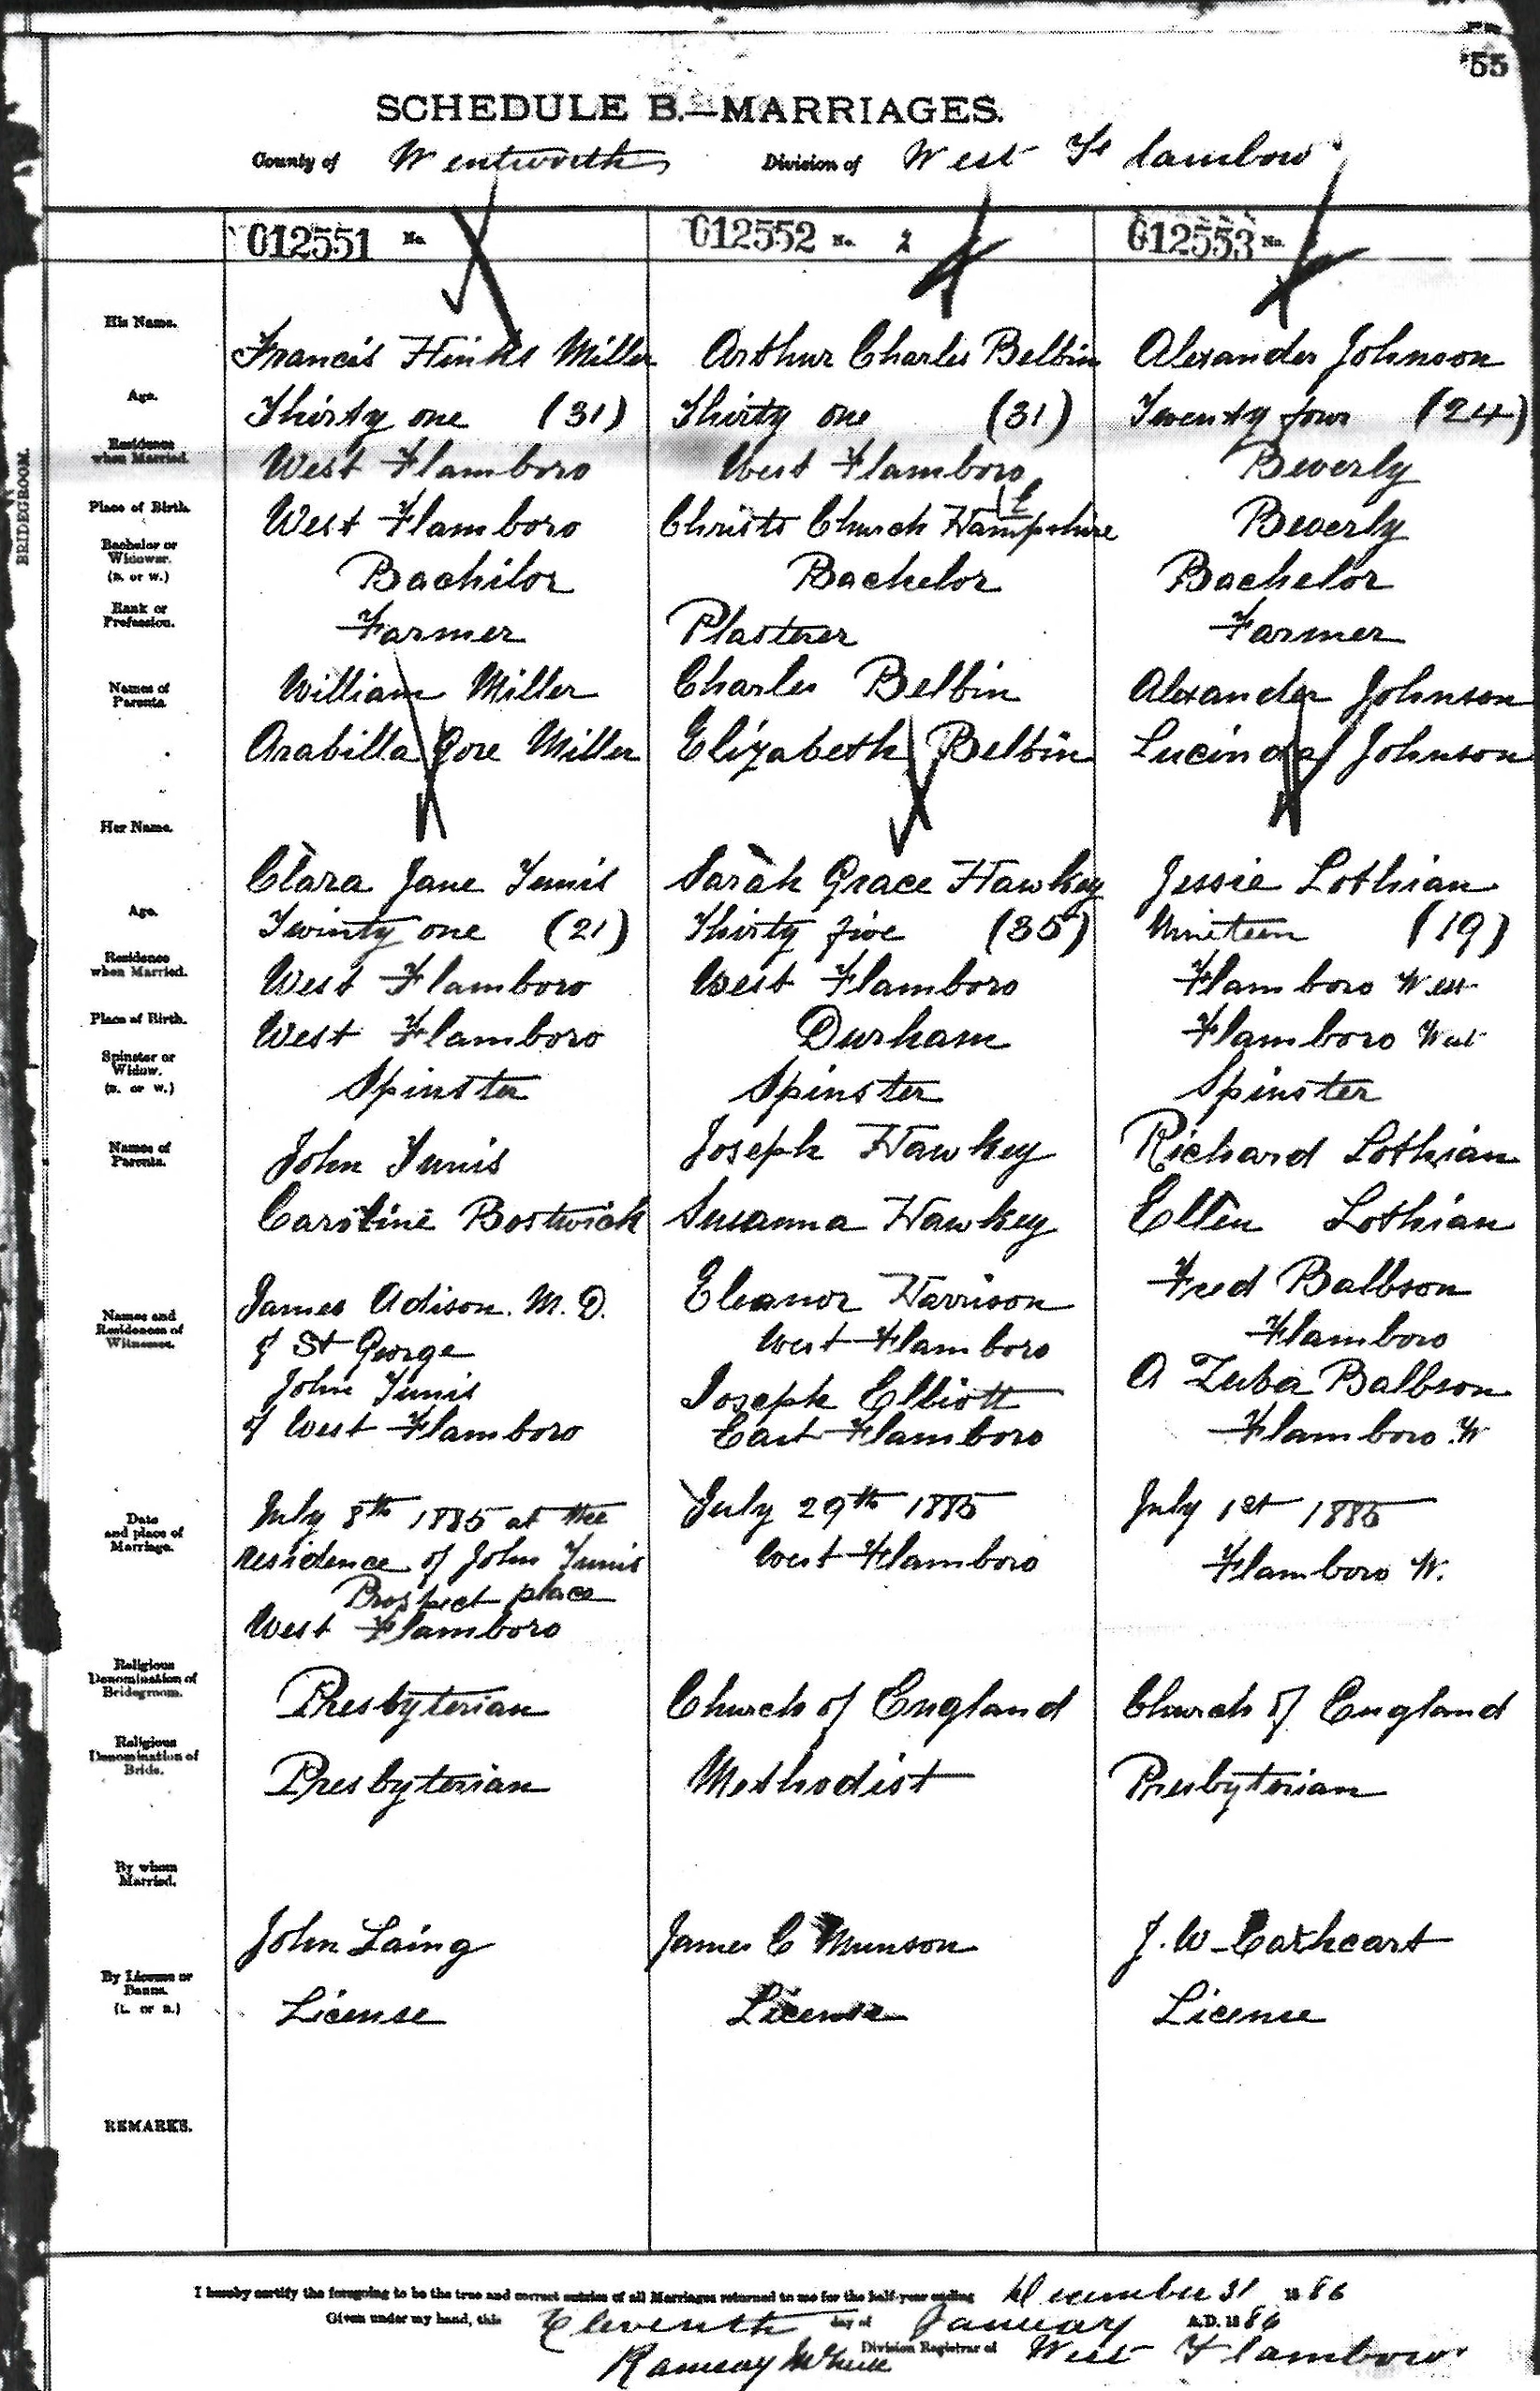 '55
SCHEDULE B.—MARRIAGES.
County of Wentworth Division of West Flamboro
012551 No. 012552 No. 2 012553 No.
BRIDEGROOM.
His Name. Francis Hinks Miller Arthur Charles Belbin Alexander Johnson
Age. Thirty one (31) Thirty one (31) Twenty four (24)
Residence when Married. West Flamboro West Flamboro Beverly
Place of Birth. West Flamboro Christs Church Hampshire Beverly
Bachelor or Widower. (B. or W.) Bachilor Bachelor Bachelor
Rank or Profession. Farmer Plasterer Farmer
Names of Parents. William Miller Charles Belbin Alexander Johnson
Arabilla Gore Miller Elizabeth Belbin Lucinda Johnson
Her Name. Clara Jane Tunis Sarah Grace Hawkey Jessie Lothian
Age. Twinty one (21) Thirty five (35) Nineteen (19)
Residence when Married. West Flamboro West Flamboro Flamboro West
Place of Birth. West Flamboro Durham Flamboro West
Spinster or Widow. (S. or W.) Spinster Spinster Spinster
Names of Parents. John Tunis Joseph Hawkey Richard Lothian
Caroline Bostwick Susanna Hawkey Ellen Lothian
Names and Residences of Witnesses. James Adison. M.D. Eleanor Harrison Fred Balbson
of St George West Flamboro Flamboro
John Tunis Joseph Elliott A Zuba Balbson
of West Flamboro East Flamboro Flamboro .W
Date and place of Marriage. July 8th 1885 at the July 29th 1885 July 1st 1885
residence of John Tunis West Flamboro Flamboro W.
Prospect place
West Flamboro
Religious Denomination of Bridegroom. Presbyterian Church of England Church of England
Religious Denomination of Bride. Presbyterian Methodist Presbyterian
By whom Married. John Laing James C Munson J. W. Cathcart
By License or Banns. (L. or B.) License License License
REMARKS.
I hereby certify the foregoing to be the true and correct entries of all Marriages returned to me for the half-year ending December 31 1886
Given under my hand, this Eleventh day of January A.D. 1886
Ramsay White Division Registrar of West Flamboro